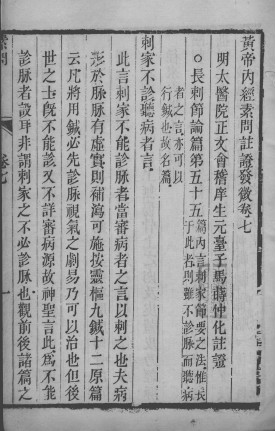 黃帝內經素問註證發微卷七
明太醫院正文會稽庠生元臺子馬蒔仲化註證
○長刺節論篇第五十五篇內言刺家節要之法惟長
于此者則雖不診脈而聽病
者之言亦可以
行鍼也故名篇
刺家不診聽病者言
此言刺家不能診脈者當審病者之言以刺之也夫病
形於脈脈有虛實則補瀉可施按靈樞九鍼十二原篇
云凡將用鍼必先診脈視氣之劇易乃可以治也但後
世之士旣不能診又不詳審病源故神聖言此爲不能
診脈者設耳非謂刺家之不必診脈也觀前後諸篇之
素問
卷七
一